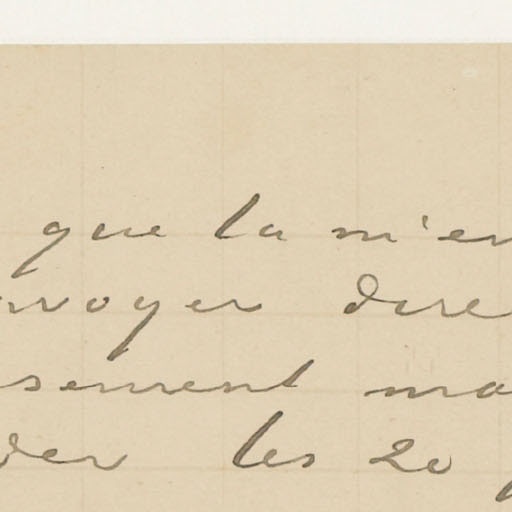 que tu m'en
nvoyer dire
sement ma
der les 20